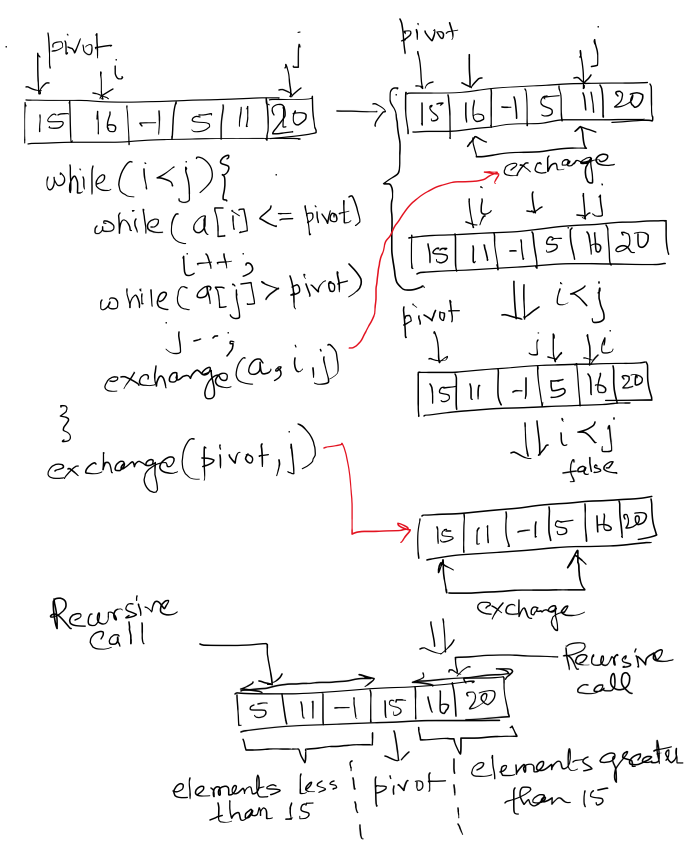 pivot
i
j
15 16 -1 5 11 20
while(i<j){
while(a[i]<=pivot)
i++;
while(a[j]>pivot)
j--;
exchange(a,i,j)
}
exchange(pivot,j)
pivot
j
15 16 -1 5 11 20
exchange
i
j
15 11 -1 5 16 20
i<j
pivot
j
i
15 11 -1 5 16 20
i<j
false
15 11 -1 5 16 20
exchange
Recursive
call
Recursive
call
5 11 -1 15 16 20
elements less
than 15
pivot
elements greater
than 15